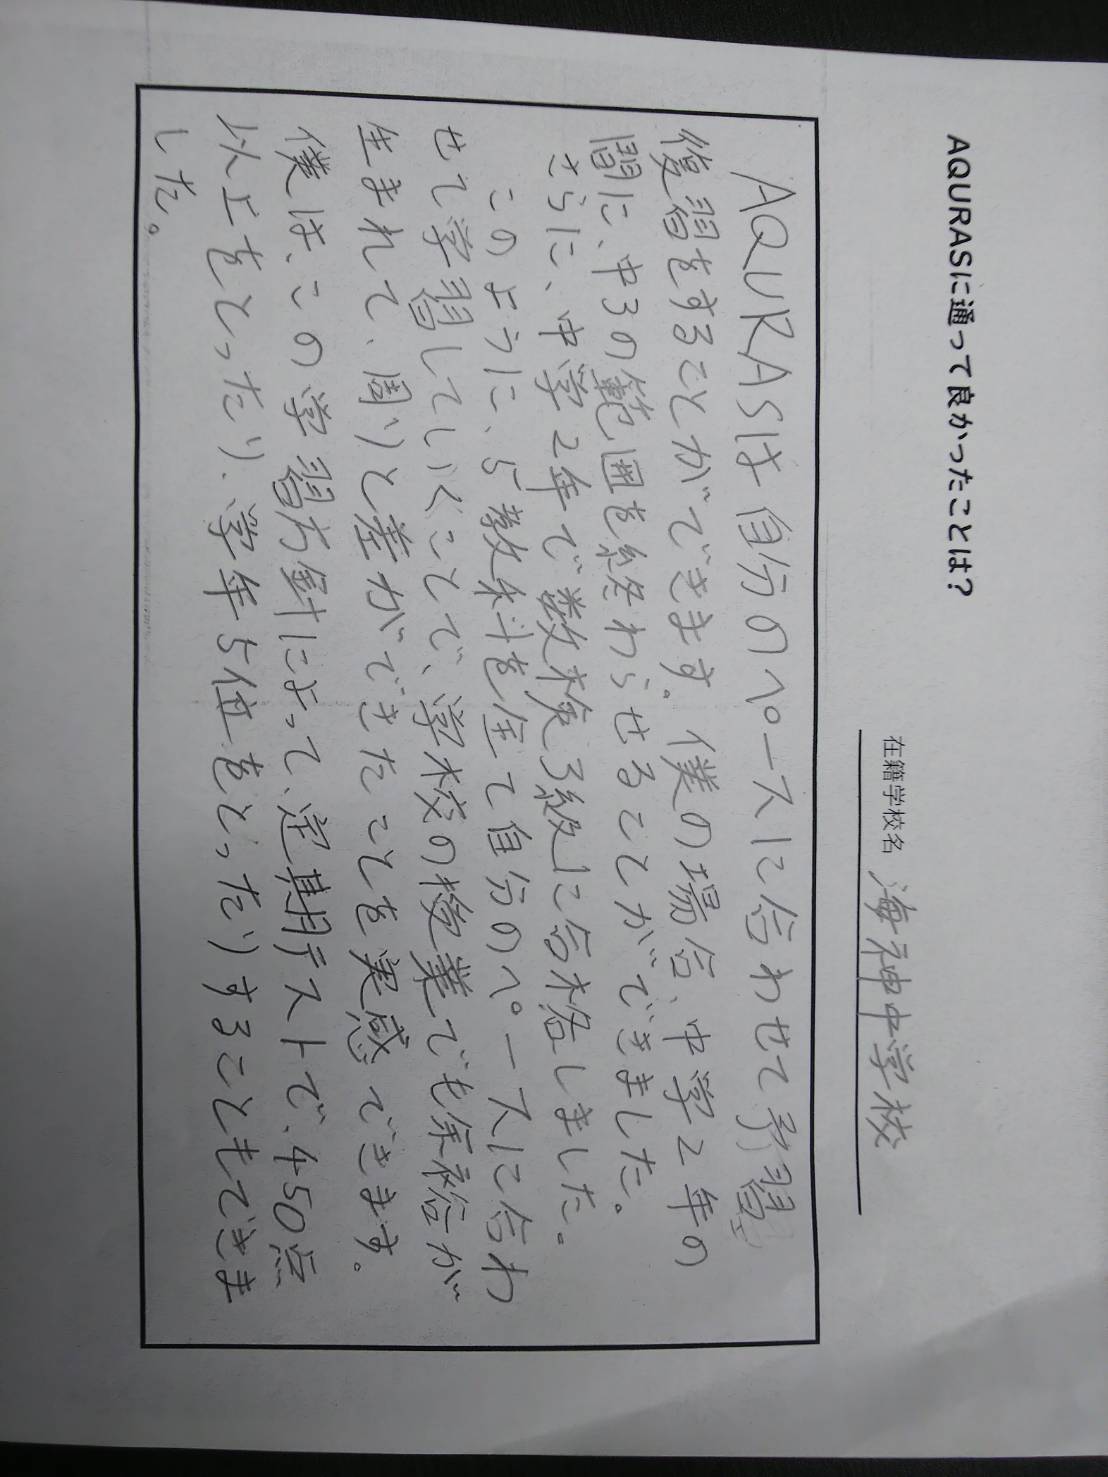 AQURASに通って良かったことは?
在籍学校名 海神中学校
AQURASは自分のペースに合わせて予習
復習をすることができます。僕の場合、中学2年の
間に、中3の範囲を終わらせることができました。
さらに、中学2年で数検3級に合格しました。
このように、5教科を全て自分のペースに合わ
せて学習していくことで、学校の授業でも余裕が
生まれて、周りと差ができたことを実感できます。
僕は、この学習方針によって、定期テストで、450点
以上をとったり、学年5位をとったりすることもできま
した。